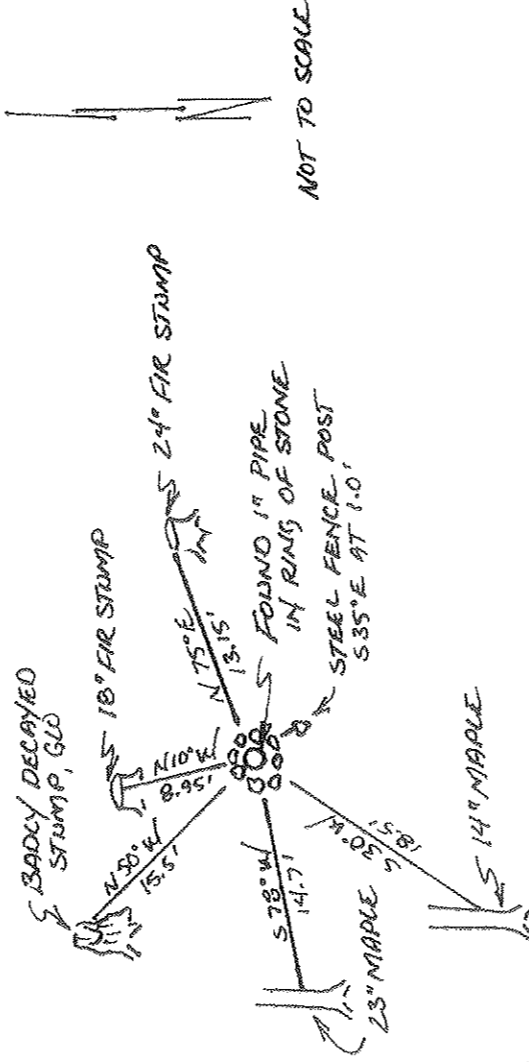 BADLY DECAYED
STUMP, GLO
18" FIR STUMP
24" FIR STUMP
N 50° W
15.5'
N 10° W
8.95'
N 75° E
13.15'
FOUND 1" PIPE
IN RING OF STONE
STEEL FENCE POST
S 35° E AT 1.0'
S 78° W
14.7'
S 30° W
18.5'
23" MAPLE
14" MAPLE
N
NOT TO SCALE